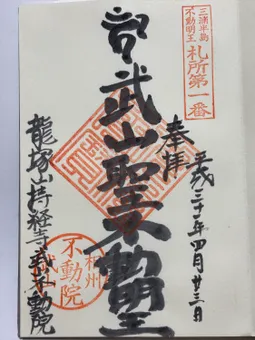 三浦半島
不動明王
札所第一番
奉拝
平成三十一年四月廿三日
武山聖不動明王
相州
不動院
武
龍塚山持経寺武山不動院